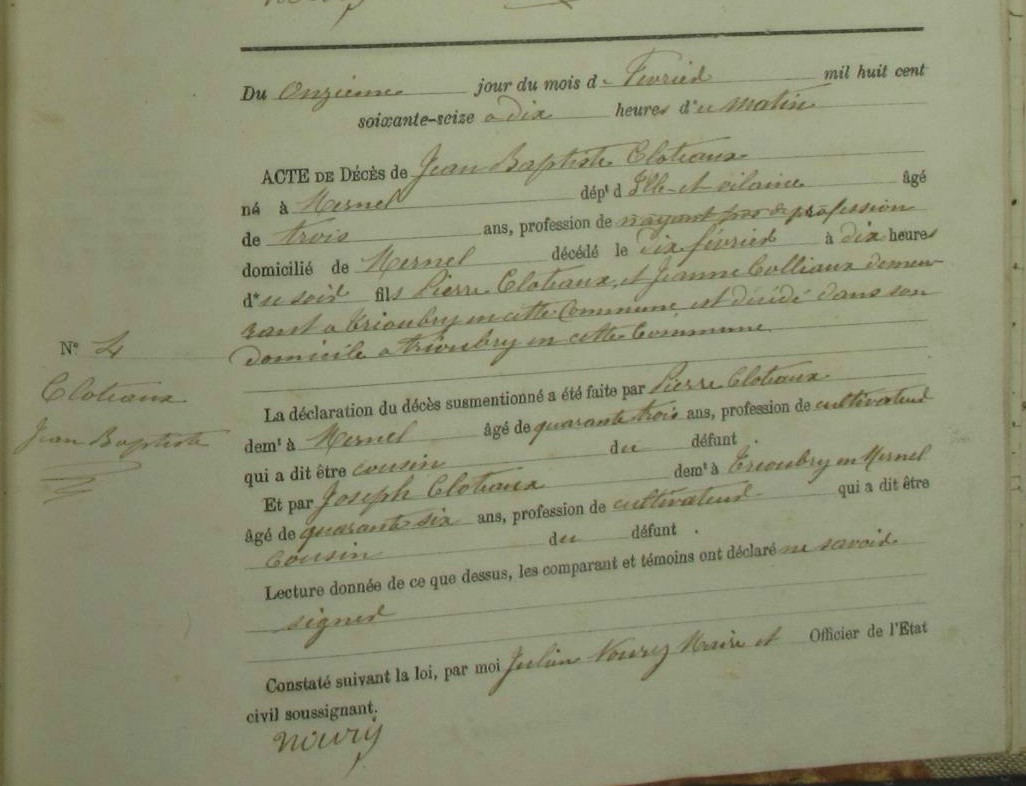 Du Onzieme jour du mois de Fevried mil huit cent
soixante-seize a dix heures du matin
ACTE DE DÉCÈS de Jean Baptiste Cloteaux
né à Mernel dépt d Ille-et-vilaine âgé
de trois ans, profession de n'ayant pas de profession
domicilié de Mernel décédé le dix févried à dix heures
d* se soid fils Pierre Cloteaux, et Jeanne Colliaux demeu-
rant a Trioubry en cette Commune, est décédé dans son
domicile a trioubry en cette Commune
N° 4
Cloteaux
Jean Baptiste
La déclaration du décès susmentionné a été faite par Pierre Cloteaux
demt à Mernel âgé de quarante trois ans, profession de cultivateud
qui a dit être cousin du défunt.
Et par Joseph Cloteaux demt à Trioubry en Mernel
âgé de quarante six ans, profession de cultivateud qui a dit être
Cousin du défunt.
Lecture donnée de ce que dessus, les comparant et témoins ont déclaré ne savoid
signed
Constaté suivant la loi, par moi Julien Noury Maire et Officier de l'Etat
civil soussignant.
Noury